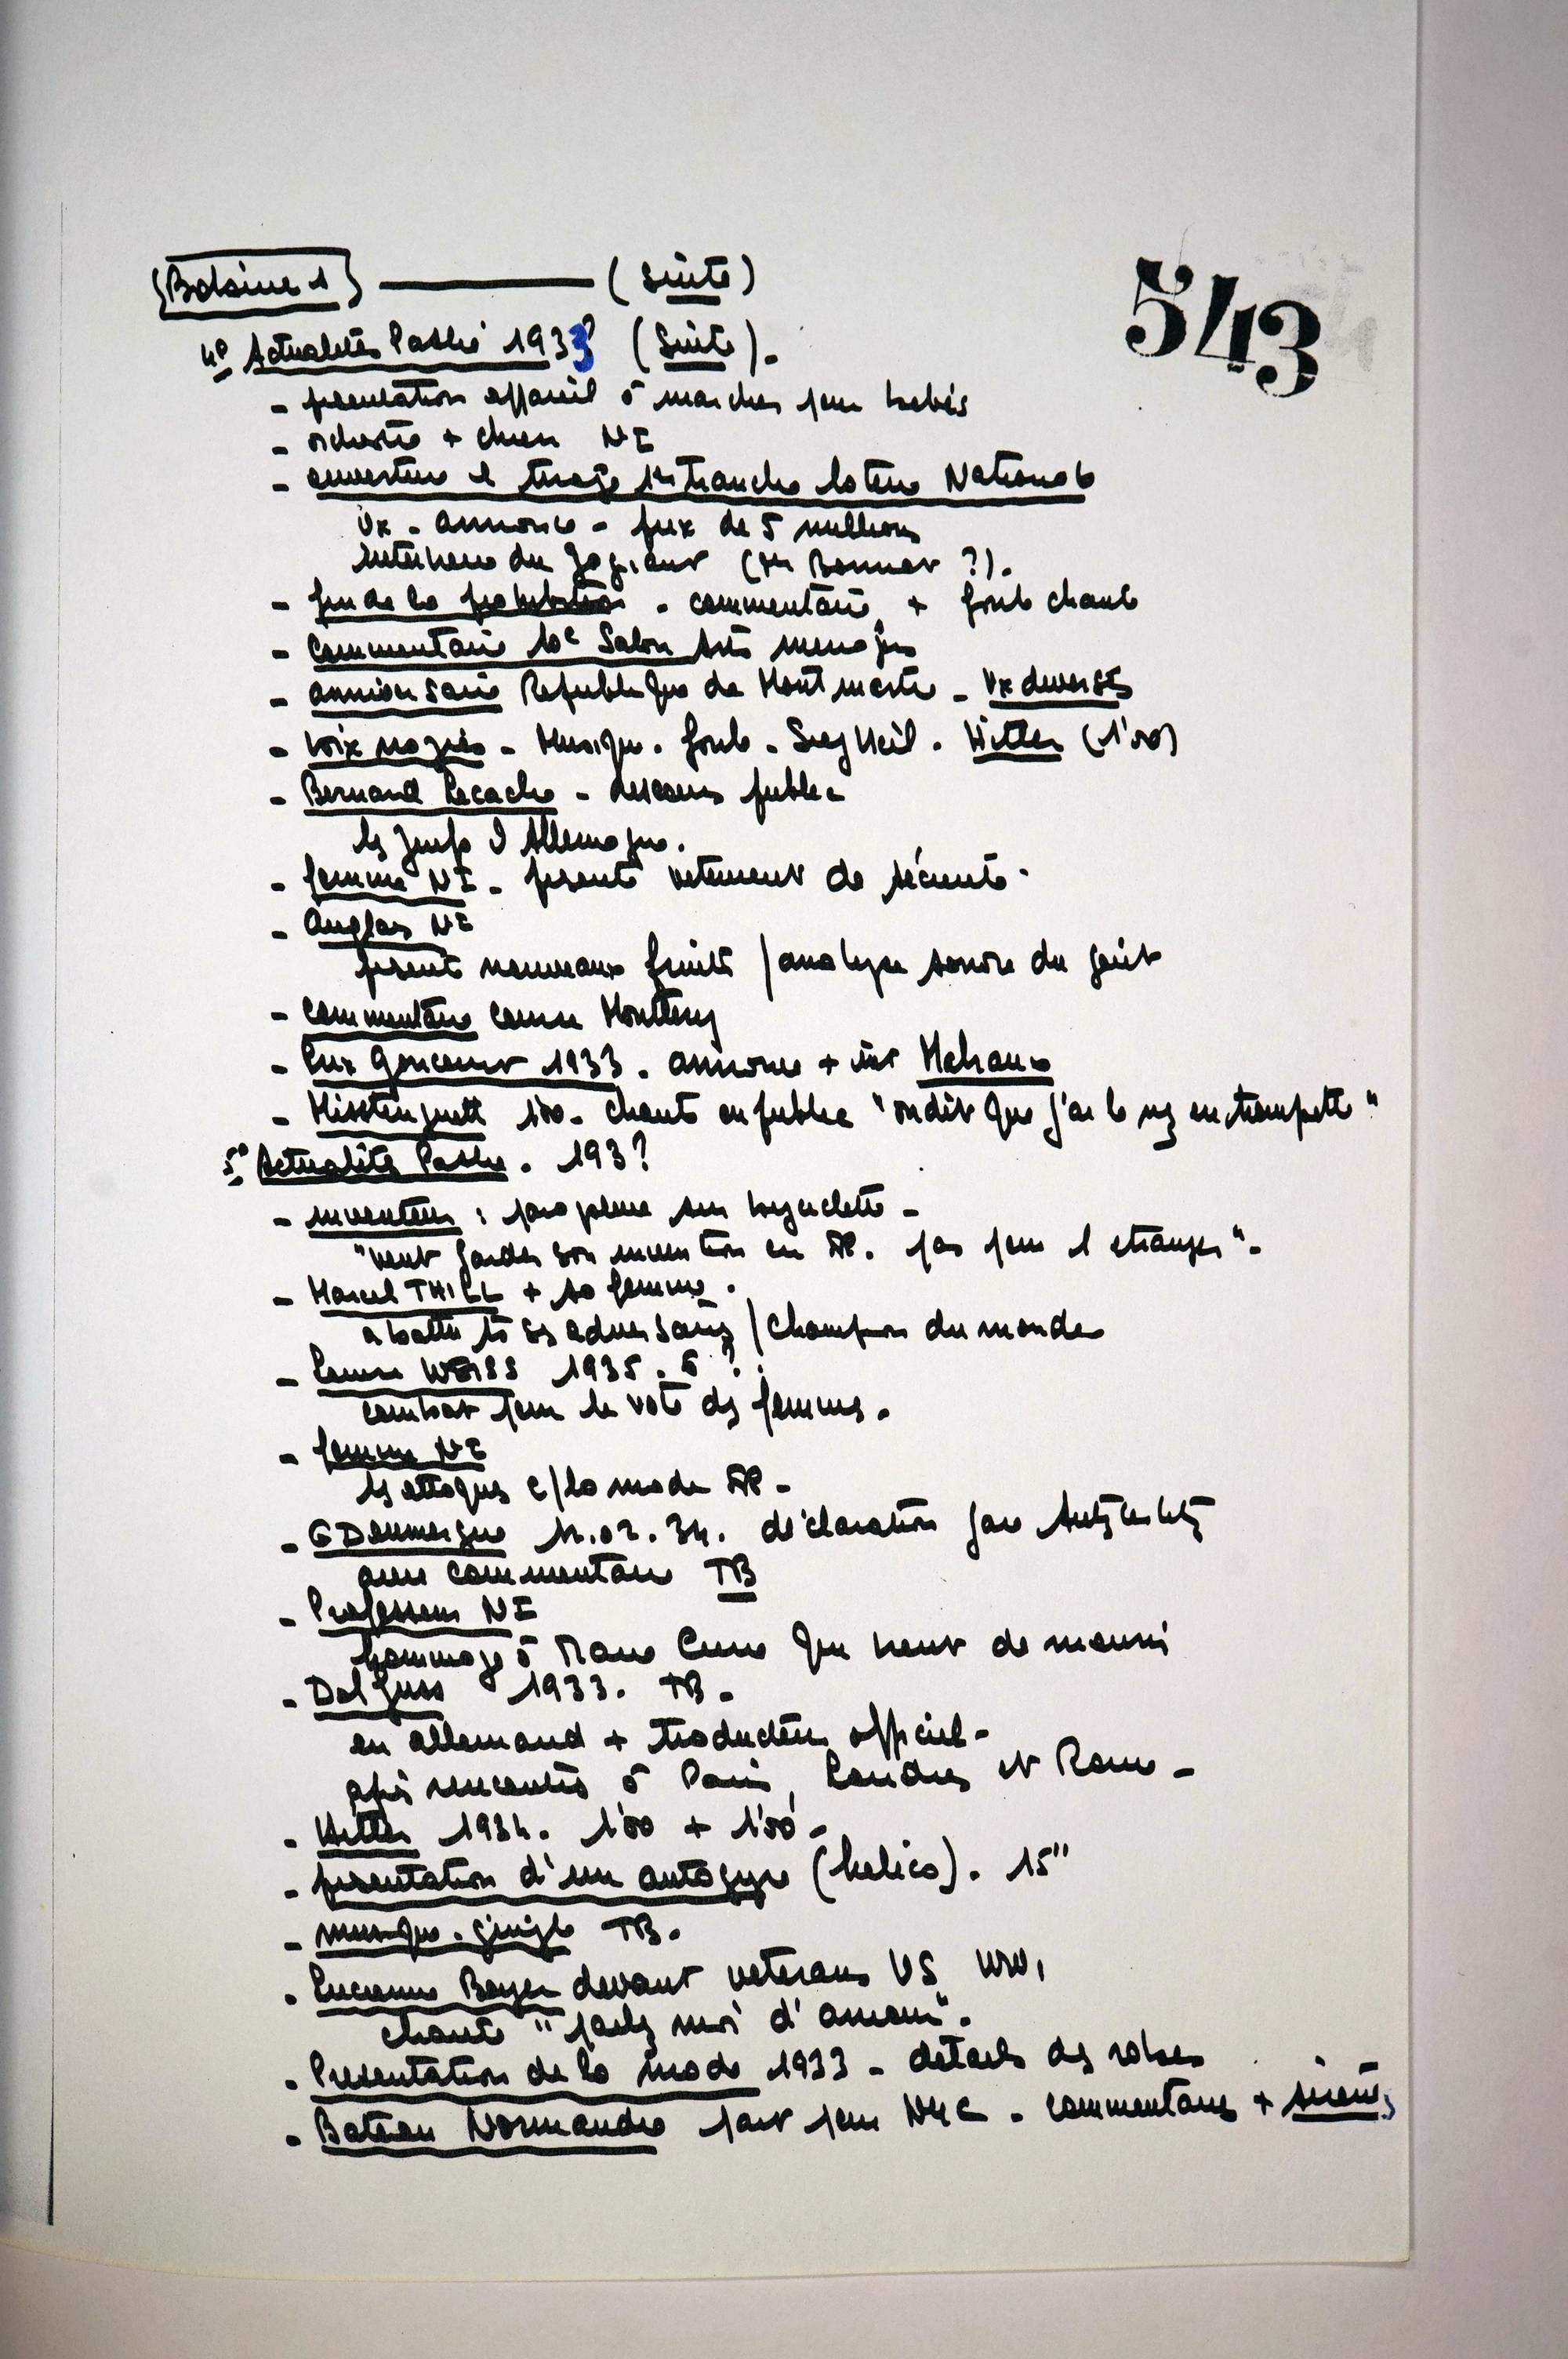 {Bobine 1} ——— (Suite)
543
4° Actualités Pathé 1933? (Suite).
- presentation appareil à marcher pour bebés
- orchestre + chien NI
- ouverture et tirage 1re tranche loterie Nationale
Vx - annonce - prix de 5 millions
interview du gagnant (Mr Bonnar ?).
- fin de la prohibition - commentaire + foule chante
- commentaire 10e Salon Arts menagers
- anniversaire Republique de Montmartre - Vx diverses
- voix nazies - Musique. foule - Sieg Heil. Hitler (1'00)
- Bernard Lecache - discours public
les Juifs d'Allemagne.
- femme NI - presente vetement de sécurité.
- Anglais NI
presente nouveaux fruits / analyse sonore du goût
- commentaire course Montlhery
- Prix Goncourt 1933. annonce + int Malraux
- Mistinguett 1'00 - chante en public "on dit que j'ai le nez en trompette"
5° Actualités Pathé. 193?
- inventeur : paraplume sur bicyclette -
"veut garder son invention en FR. pas pour l'etranger".
- Marcel THILL + sa femme.
a battu ts ses adversaires / Champion du monde
- Louise WEISS 1935. 6 ?
combat pour le vote des femmes.
- femme NI
les attaques c/ la mode FR -
- G Doumergue 12.02.34. déclaration gare Austerlitz
avec commentaire TB
- Professeur NI
hommage à Marie Curie qui vient de mourir
- Dolfuss 1933. TB -
en allemand + traducteur officiel -
après rencontres à Paris, Londres et Rome -
- Hitler 1934. 1'00 + 1'50 -
- presentation d'un autogyre (helico). 15"
- musique. jingle TB.
- Lucienne Boyer devant veterans US WW1
chante "parlez moi d'amour".
- Presentation de la mode 1933 - details des robes
- Bateau Normandie part pour NYC - commentaires + sirènes